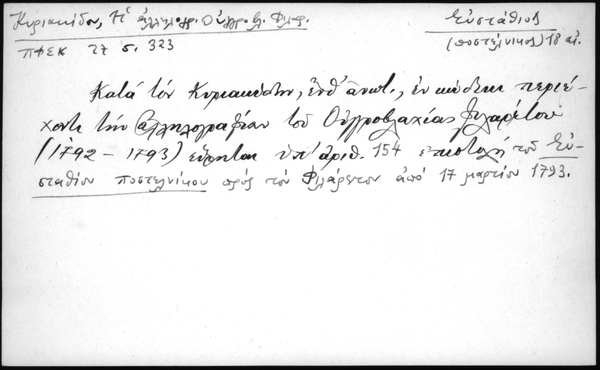 Κυριακίδου, Ἡ ἀλληλογρ. Οὑγγρ. βλ. Φιλαρ.
ΠΦΣΚ 27 σ. 323
Εὐστάθιος
(ποστέλνικος) 18 αἰ.
Κατά τόν Κυριακίδην, ἔνθ' ἀνωτ., ἐν κώδικι περιέ-
χοντι τήν Ἀλληλογραφίαν τοῦ Οὑγγροβλαχίας Φιλαρέτου
(1792 – 1793) εὕρηται ὑπ' ἀριθ. 154 ἐπιστολή τοῦ Εὐ-
σταθίου ποστελνίκου πρός τόν Φιλάρετον ἀπό 17 μαρτίου 1793.